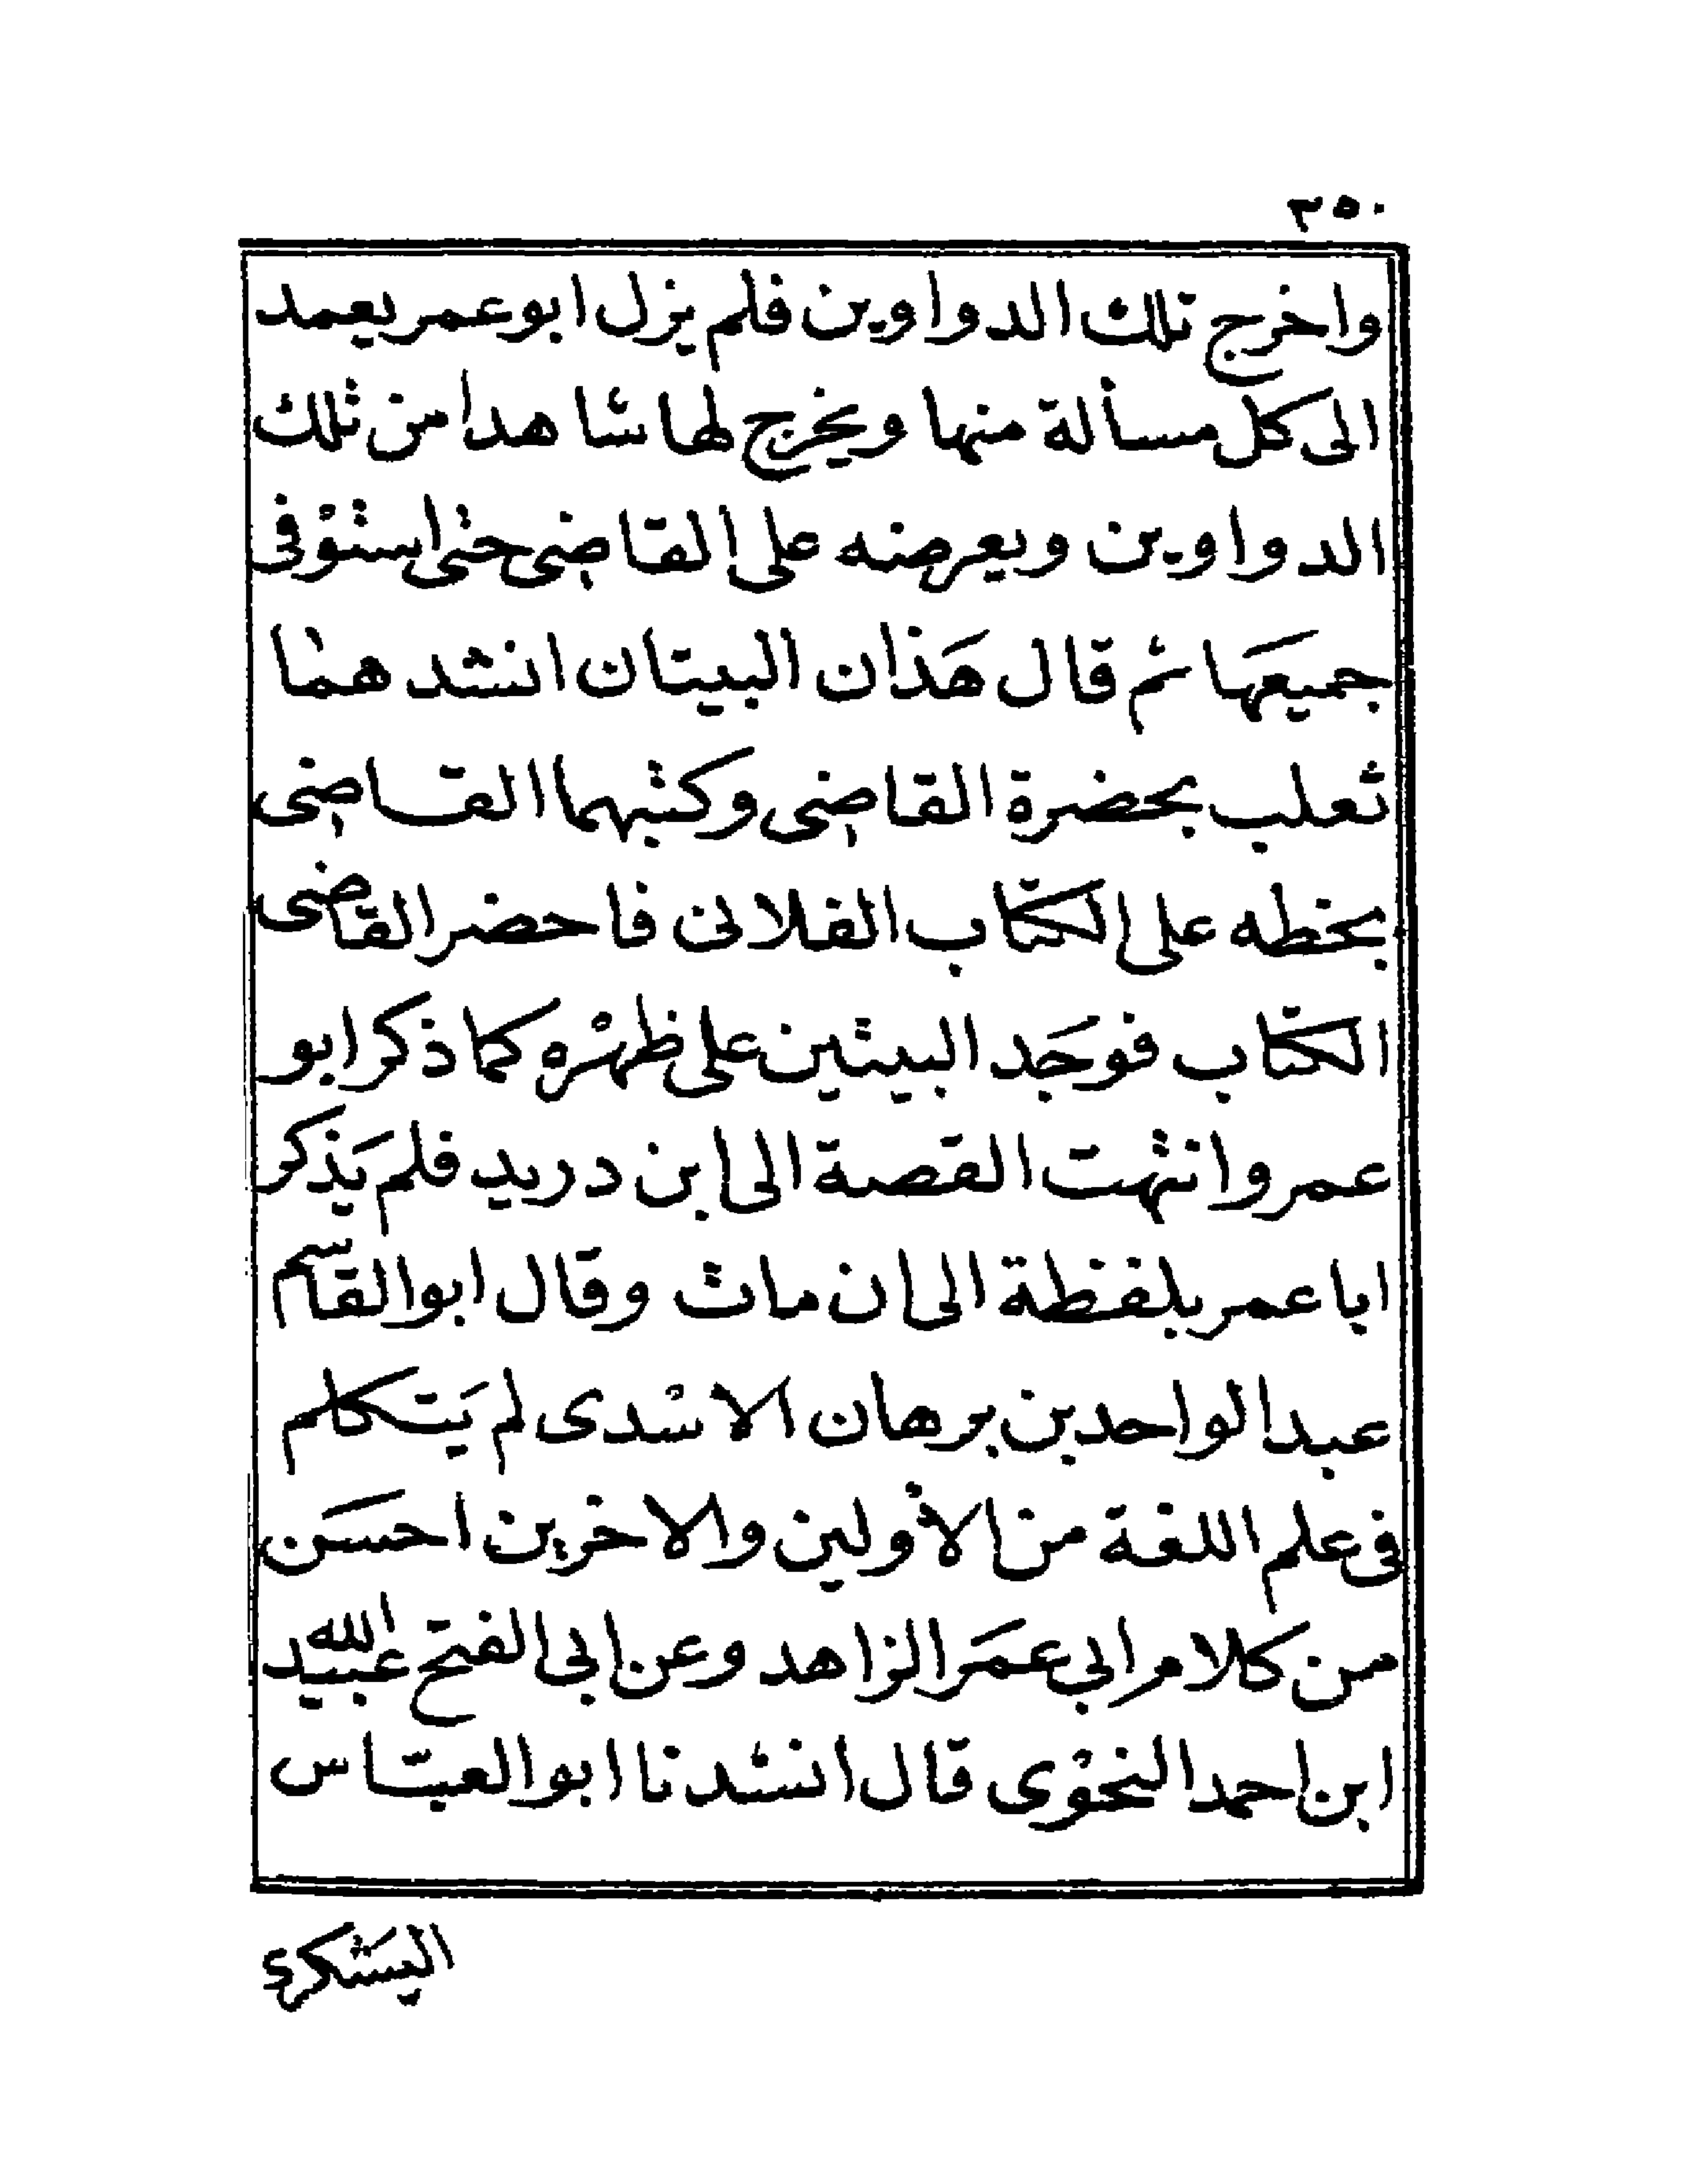 ٣٥٠
واخرج تلك الدواوين فلم يزل ابو عمر يعمد
الى كل مسألة منها ويخرج لها شاهدا من تلك
الدواوين ويعرضه على القاضى حتى استوْفى
جميعَها ثم قال هَذان البيتان انشدهما
ثعلب بحضرة القاضى وكتبهما القاضى
بخطه على الكتاب الفلانى فاحضر القاضى
الكتاب فوجَد البيتين على ظهْره كما ذكر ابو
عمر وانتهت القصة الى ابن دريد فلم يَذكر
ابا عمر بلفظة الى ان مات وقال ابو القاسم
عبد الواحد بن برهان الاسْدى لم يَتكلم
فى علم اللغة من الأولين والاخرين احسَن
من كلام ابي عمَر الزاهد وعن ابى الفتح عبيد الله
ابن احمد النحوْى قال انشدنا ابو العبّاس
اليَشكرى